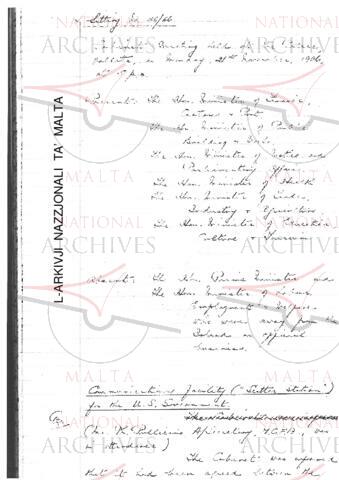 Sitting No. 46/66
Informal Meeting held at the Palace,
Valletta, on Monday, 21st November, 1966,
at 5 p.m.
Present: The Hon. Minister of Finance,
Customs & Port
The Hon. Minister of Public
Building & Works
The Hon. Minister of Justice and
Parliamentary Affairs
The Hon. Minister of Health
The Hon. Minister of Trade,
Industry & Agriculture
The Hon. Minister of Education
Culture & Tourism
Absent: The Hon. Prime Minister and
the Hon. Minister of Labour
Employment &
were away from the
Island on official
business.
Communications Facility ("Scatter Station")
for the U.S. Government
(Mr. in
attendance)
The Cabinet was informed
that it had been agreed between the
L-ARKIVJI NAZZJONALI TA' MALTA
NATIONAL
ARCHIVES
MALTA